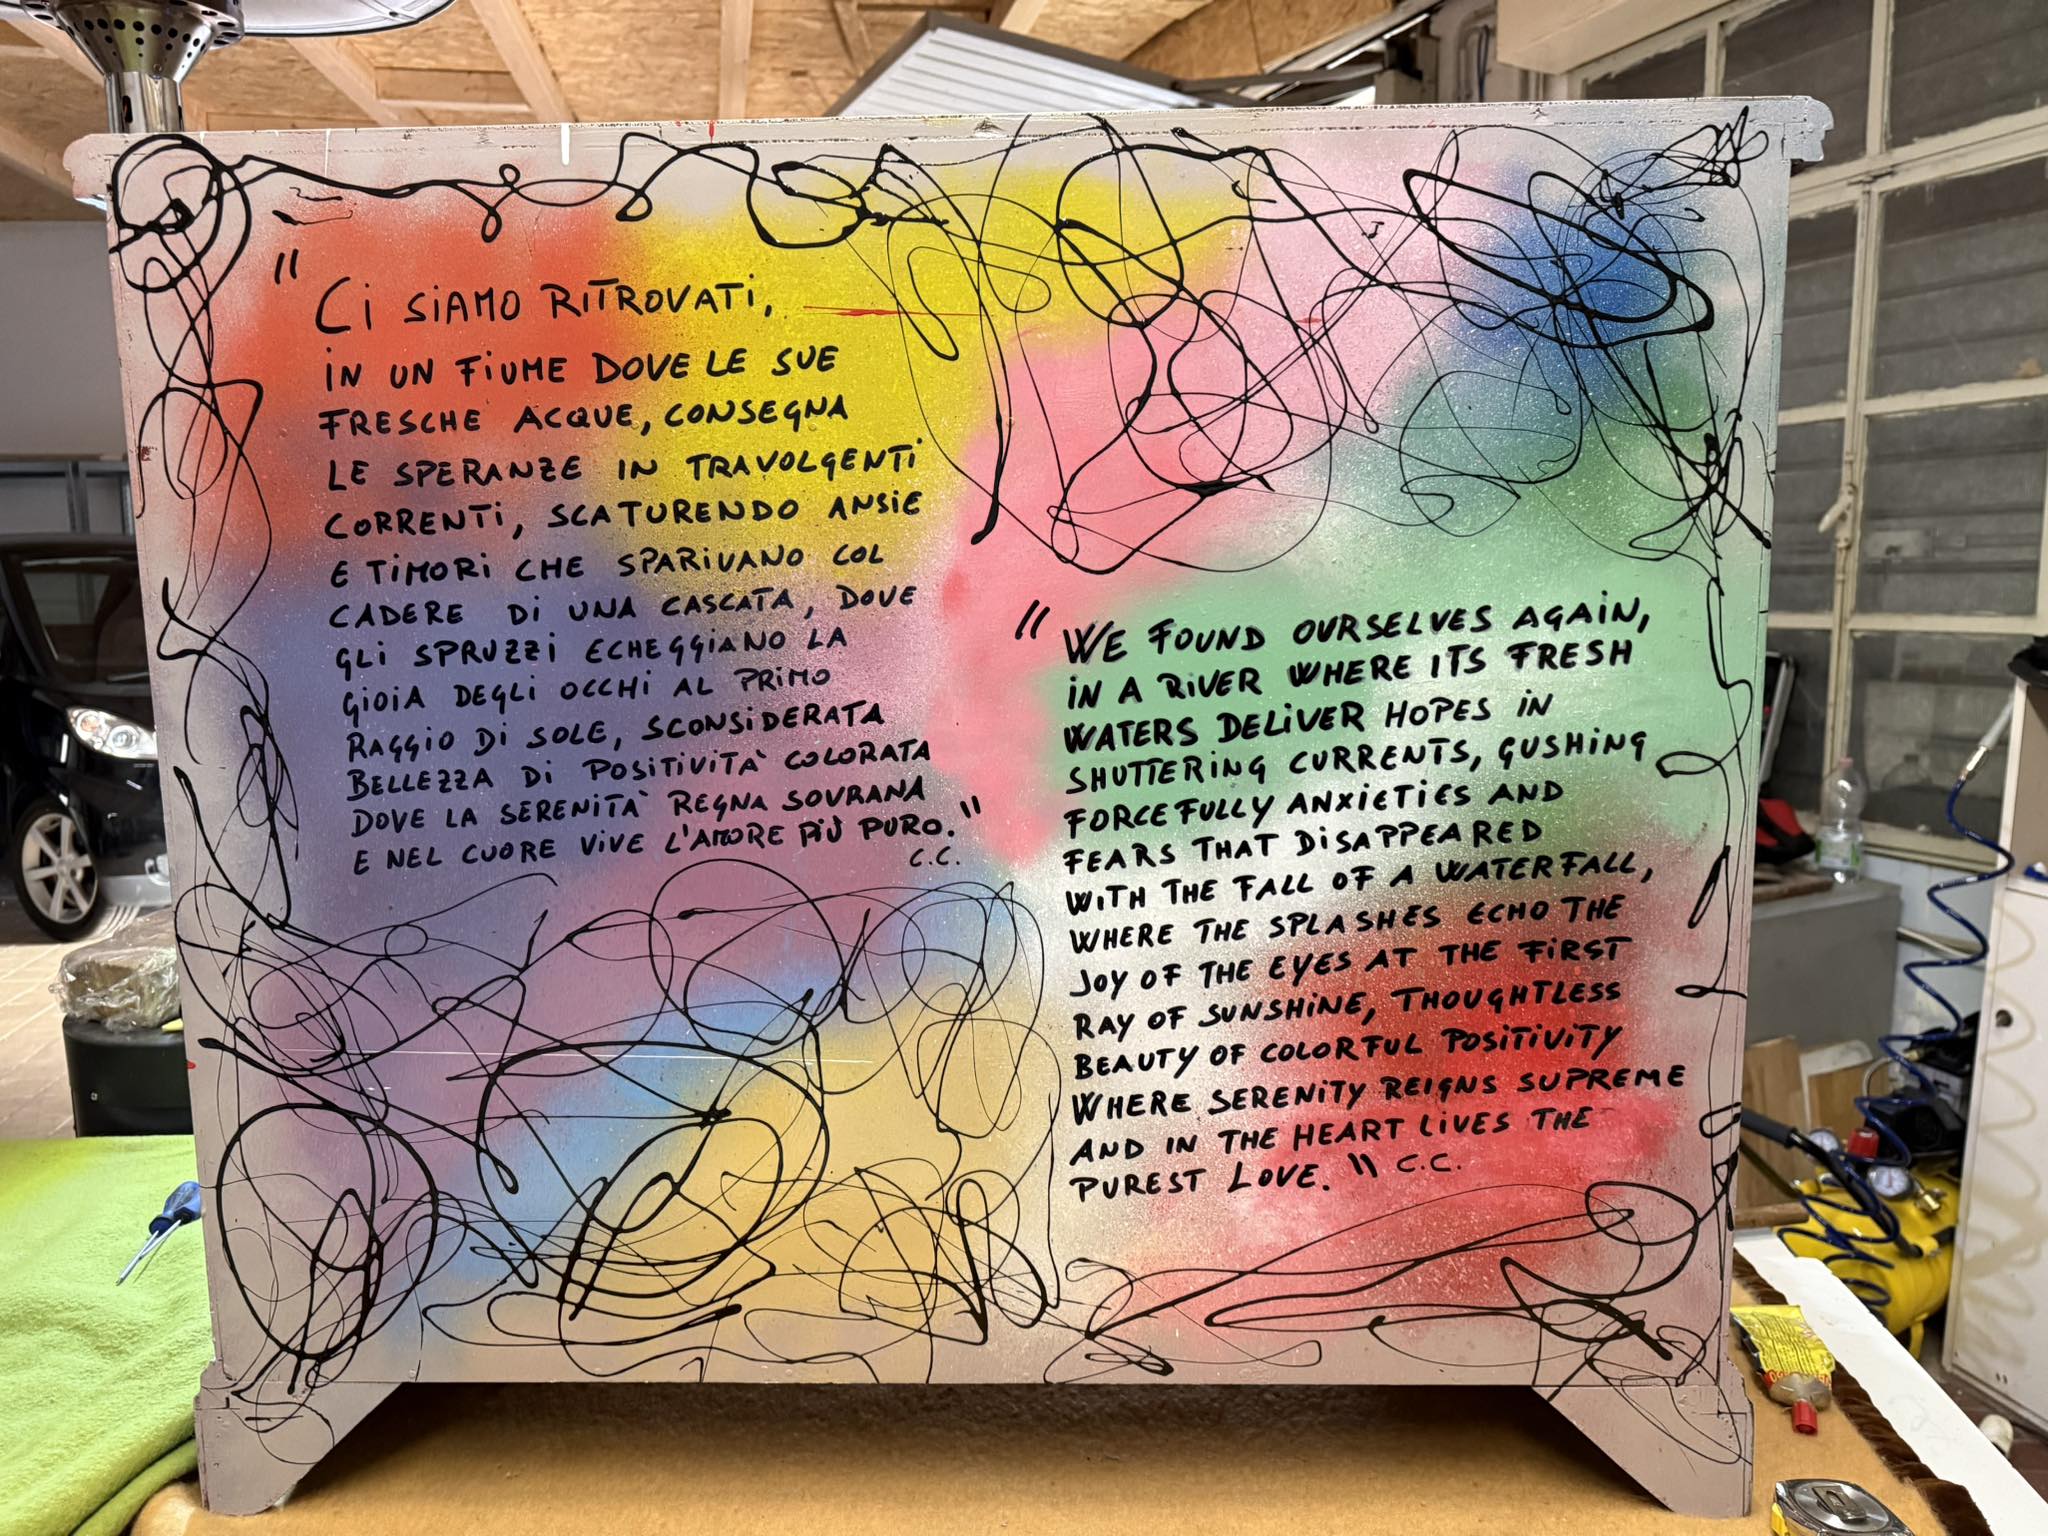 "Ci SiAMO RITROVATi,
iN UN FiUME DOVE LE SUE
FRESCHE ACQUE, CONSEGNA
LE SPERANZE IN TRAVOLGENTi
CORRENTi, SCATURENDO ANSiE
E TiMORi CHE SPARiVANO COL
CADERE Di UNA CASCATA, DOVE
GLi SPRUZZi ECHEGGiANO LA
GiOiA DEGLi OCCHi AL PRiMO
RAGGiO Di SOLE, SCONSiDERATA
BELLEZZA Di POSiTiViTÀ COLORATA
DOVE LA SERENiTÀ REGNA SOVRANA
E NEL CUORE ViVE L'AMORE PiÙ PURO."
C.C.
"WE FOUND OURSELVES AGAiN,
iN A RiVER WHERE iTS FRESH
WATERS DELiVER HOPES iN
SHUTTERiNG CURRENTS, GUSHiNG
FORCEFULLY ANXiETiES AND
FEARS THAT DiSAPPEARED
WiTH THE FALL OF A WATERFALL,
WHERE THE SPLASHES ECHO THE
JOY OF THE EYES AT THE FiRST
RAY OF SUNSHiNE, THOUGHTLESS
BEAUTY OF COLORFUL POSiTiViTY
WHERE SERENiTY REiGNS SUPREME
AND IN THE HEART LiVES THE
PUREST LOVE." C.C.